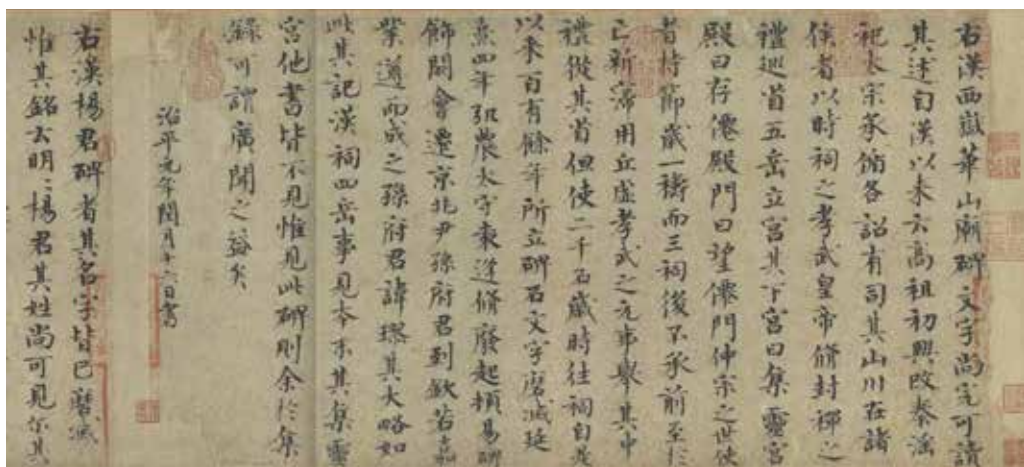 右漢西嶽華山廟碑文字尚完可讀
其述自漢以来云高祖初興改秦滛
祀太宗承循各詔有司其山川在諸
侯者以時祠之孝武皇帝修封禪之
禮巡省五岳立宮其下宮曰集靈宮
殿曰存僊殿門曰望僊門仲宗之世使
者持節歲一禱而三祠後不承前至於
亡新寖用丘虛孝武之元事舉其中
禮從其省但使二千石歲時往祠自是
以来百有餘年所立碑石文字磨滅延
熹四年弘農太守袁逢修廢起頓易碑
飾闕會遷京兆尹孫府君到欽若嘉
業遵而成之孫府君諱璆其大略如
此其記漢祠四岳事見本末其集靈
宮他書皆不見惟見此碑則余於集
録可謂廣聞之益矣
治平元年閏月十六日書
右漢楊君碑者其名字皆已磨滅
惟其銘云明〻楊君其姓尚可見尔其